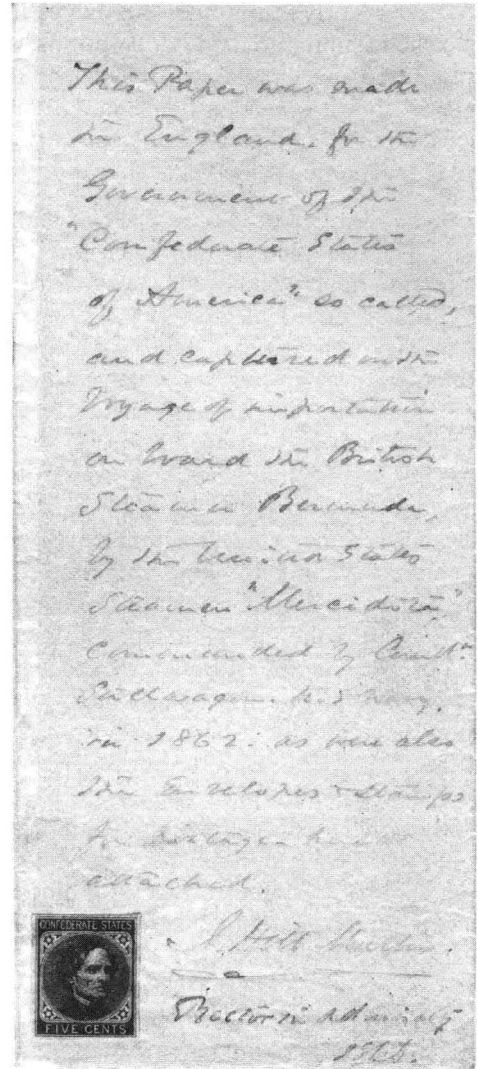 This Paper was made
in England, for the
Government of the
"Confederate States
of America" so called,
and captured on the
Voyage of importation
on board the British
Steamer Bermuda,
by the United States
Steamer "Mercidita,"
commanded by Comdr.
Stellwagen. U.S. Navy.
in 1862: as were also
the Envelopes & Stamps
for postage here
attached.
J. Hill Martin.
Proctor in Admiralty
CONFEDERATE STATES
FIVE CENTS